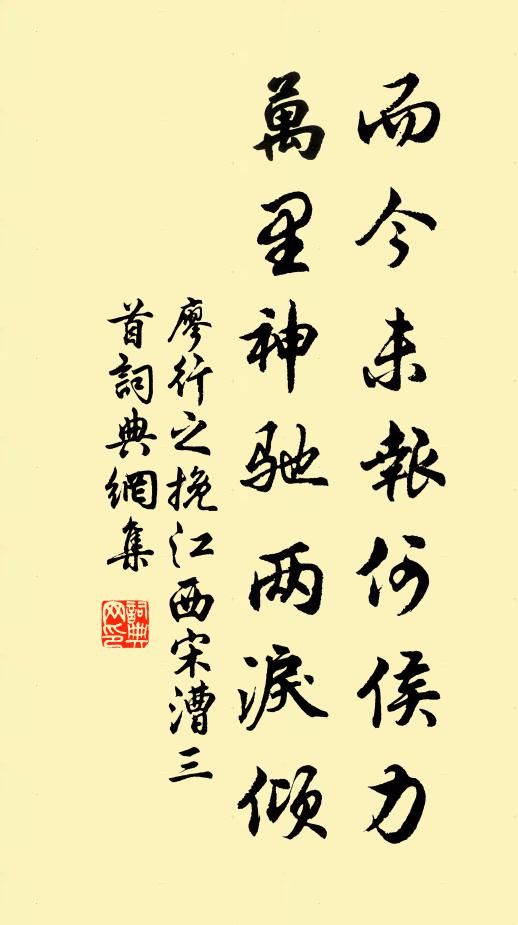 而今未報何侯力
萬里神馳两淚傾
廖行之挽江西宋漕三
首詞典網集
詞典
网印